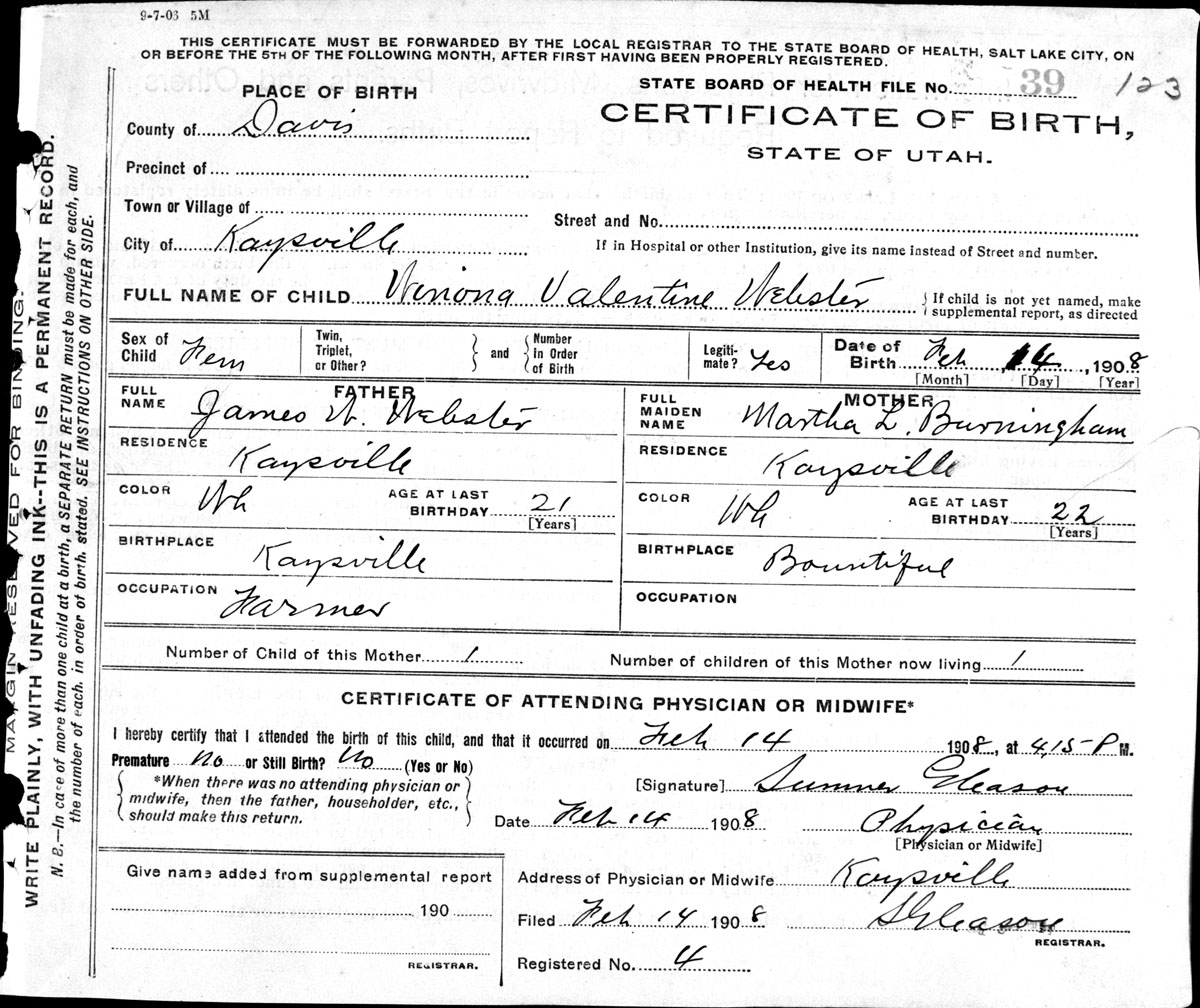 9-7-03 5M
THIS CERTIFICATE MUST BE FORWARDED BY THE LOCAL REGISTRAR TO THE STATE BOARD OF HEALTH, SALT LAKE CITY, ON
OR BEFORE THE 5TH OF THE FOLLOWING MONTH, AFTER FIRST HAVING BEEN PROPERLY REGISTERED.
PLACE OF BIRTH
STATE BOARD OF HEALTH FILE No. 39 123
County of Davis
CERTIFICATE OF BIRTH,
STATE OF UTAH.
Precinct of
Town or Village of
Street and No.
City of Kaysville
If in Hospital or other Institution, give its name instead of Street and number.
FULL NAME OF CHILD Winona Valentine Webster
If child is not yet named, make
supplemental report, as directed
Sex of
Child Fem
Twin,
Triplet,
or Other?
and
Number
in Order
of Birth
Legiti-
mate? Yes
Date of
Birth Feb 14, 1908
[Month] [Day] [Year]
FATHER
FULL
NAME James W. Webster
MOTHER
FULL
MAIDEN
NAME Martha L. Burningham
RESIDENCE Kaysville
RESIDENCE Kaysville
COLOR Wh AGE AT LAST
BIRTHDAY 21
[Years]
COLOR Wh AGE AT LAST
BIRTHDAY 22
[Years]
BIRTHPLACE Kaysville
BIRTHPLACE Bountiful
OCCUPATION Farmer
OCCUPATION
Number of Child of this Mother 1
Number of children of this Mother now living 1
CERTIFICATE OF ATTENDING PHYSICIAN OR MIDWIFE*
I hereby certify that I attended the birth of this child, and that it occurred on Feb 14 1908, at 4,15 P M.
Premature No or Still Birth? No (Yes or No)
*When there was no attending physician or
midwife, then the father, householder, etc.,
should make this return.
[Signature] Sumner Gleason
Date Feb 14 1908 Physician
[Physician or Midwife]
Give name added from supplemental report
190
REGISTRAR.
Address of Physician or Midwife Kaysville
Filed Feb 14 1908 S Gleason
REGISTRAR.
Registered No. 4
MARGIN RESERVED FOR BINDING.
WRITE PLAINLY, WITH UNFADING INK--THIS IS A PERMANENT RECORD.
N. B.—In case of more than one child at a birth, a SEPARATE RETURN must be made for each, and
the number of each, in order of birth, stated. SEE INSTRUCTIONS ON OTHER SIDE.